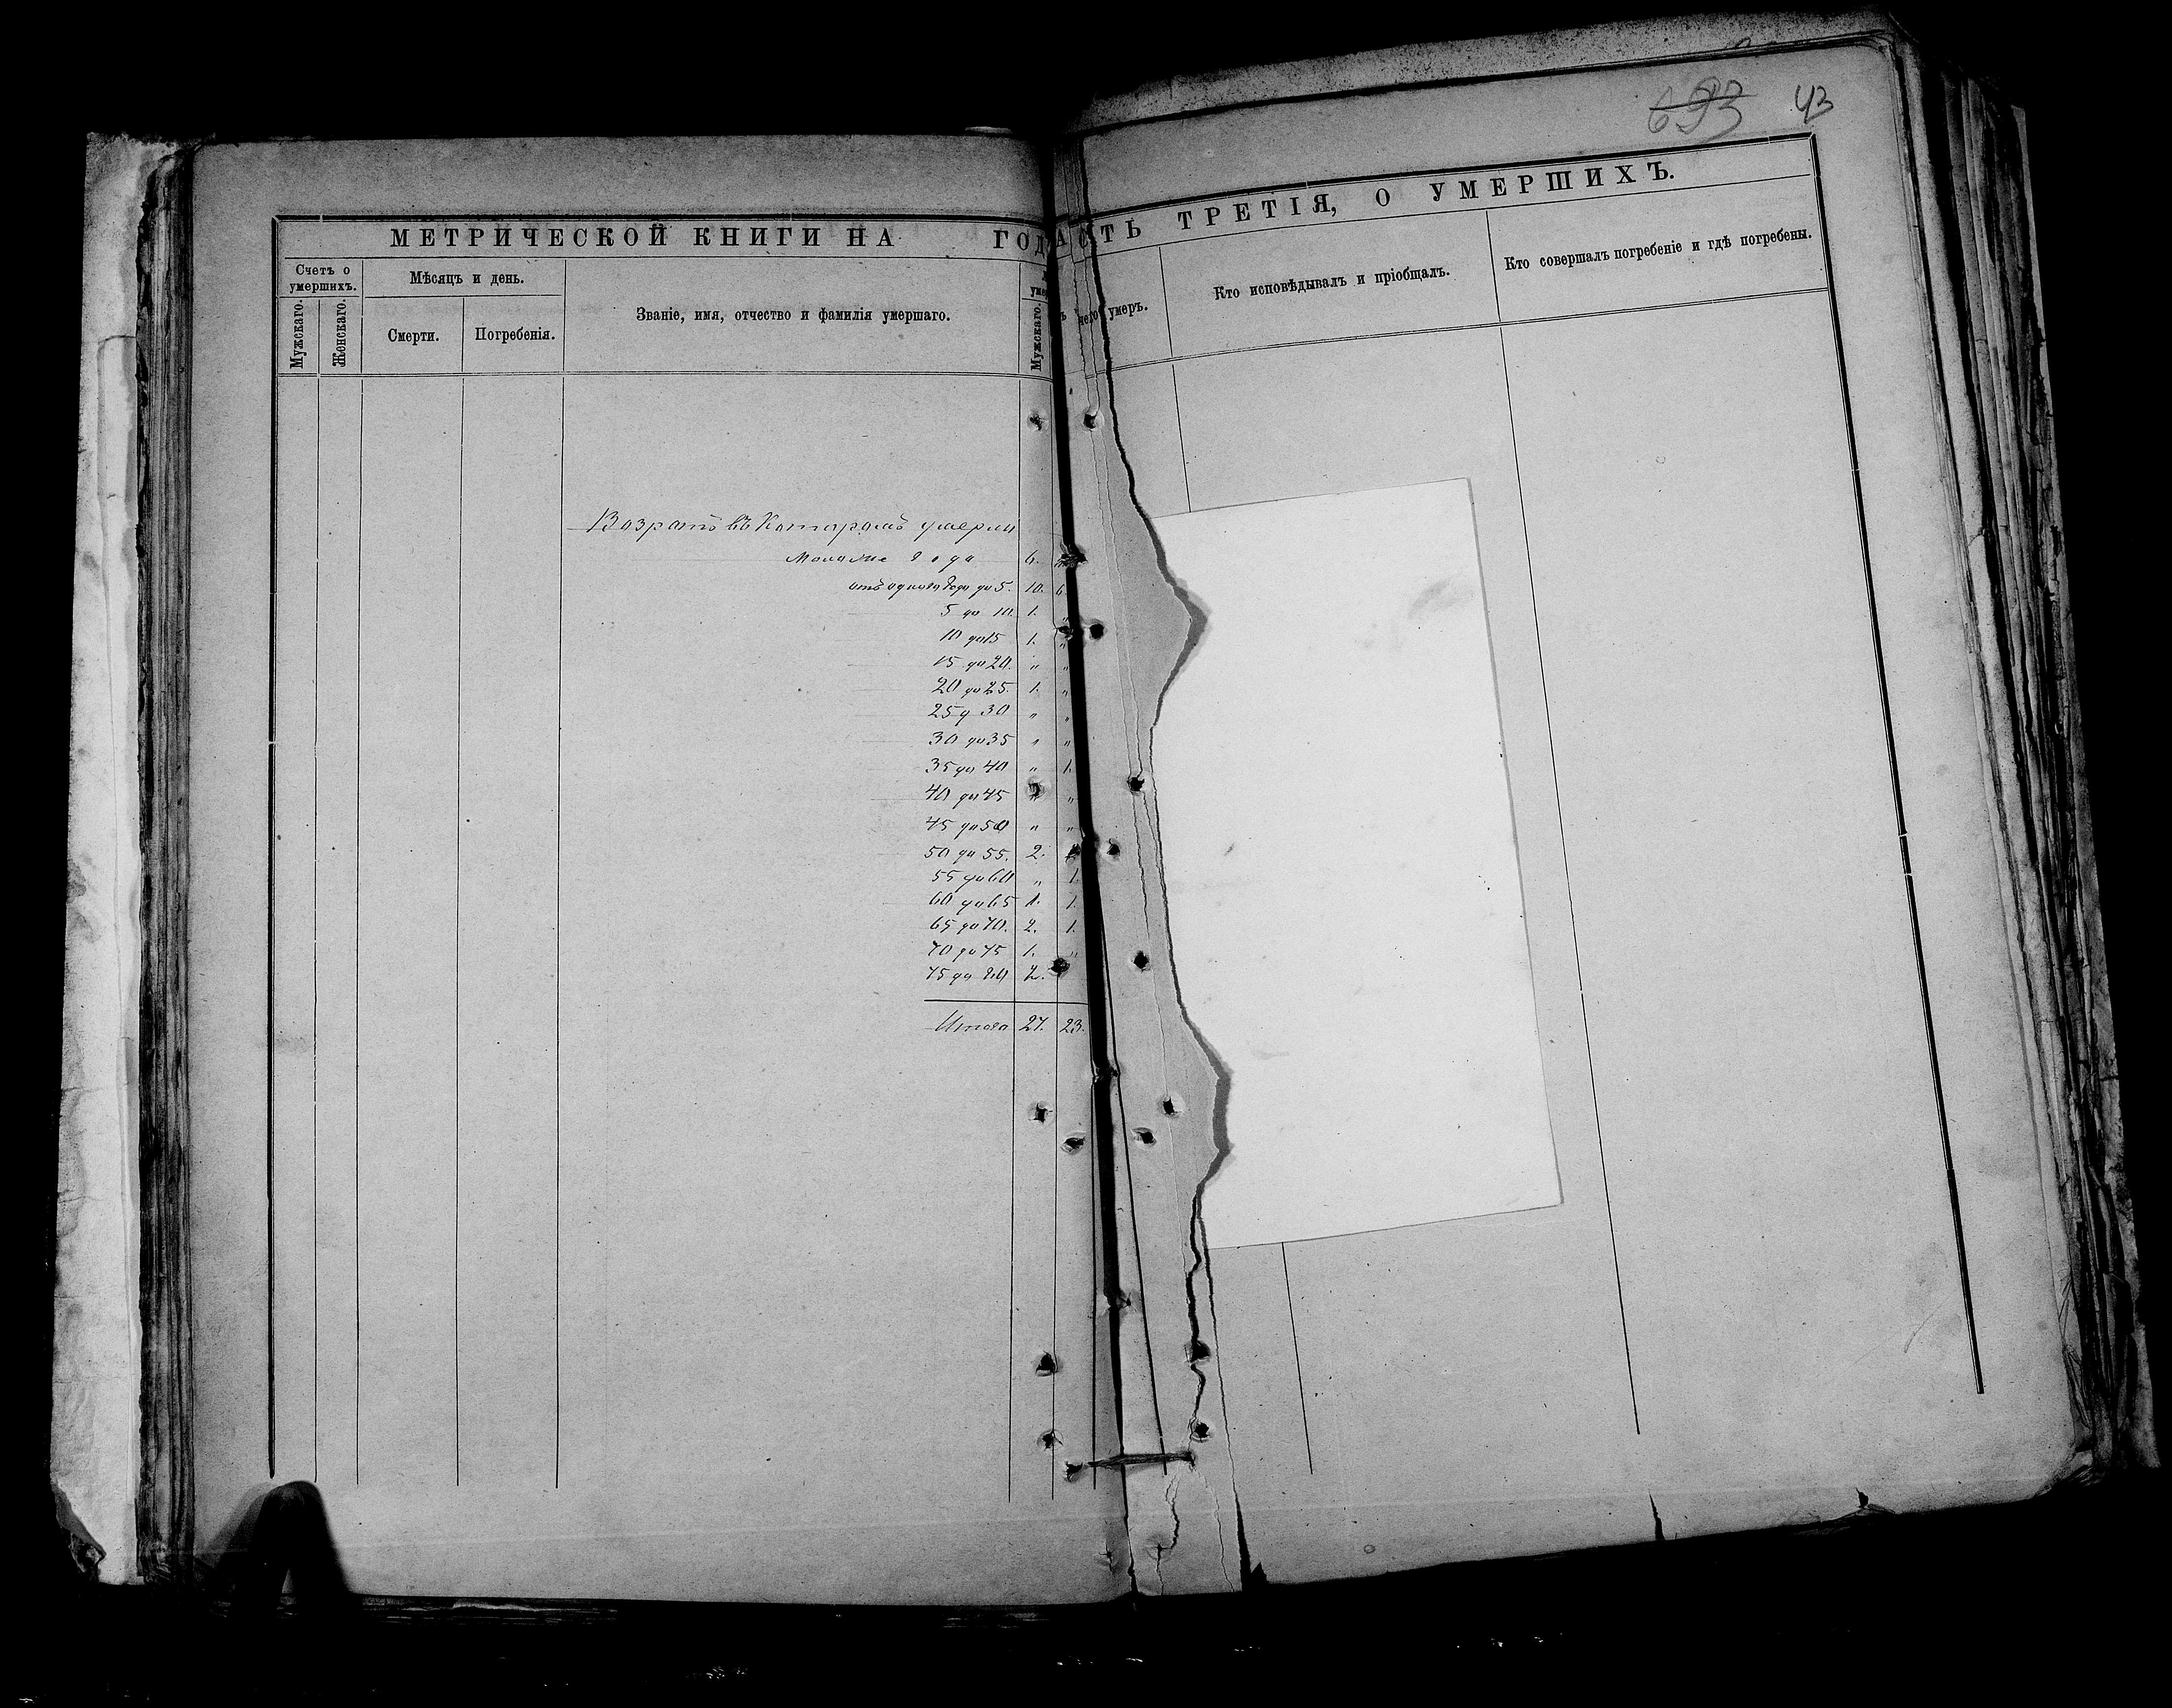 693 43
МЕТРИЧЕСКОЙ КНИГИ НА ГОД
АСТЬ ТРЕТІЯ, О УМЕРШИХЪ.
Счетъ о умершихъ.
Мужскаго.
Женскаго.
Мѣсяцъ и день.
Смерти.
Погребенія.
Званіе, имя, отчество и фамилія умершаго.
Мужскаго.
чего умеръ.
Кто исповѣдывалъ и пріобщалъ.
Кто совершалъ погребеніе и гдѣ погребены.
Возратъ въ Которомъ умерли
Моложе года 6.
отъ одного Года до 5. 10. 6
5 до 10. 1. "
10 до 15 1. "
15 до 20. " "
20 до 25. 1. "
25 д 30 " "
30 до 35 " "
35 до 40 " 1.
40 до 45 " "
45 до 50 " "
50 до 55. 2.
55 до 60 " 1.
60 до 65 1. 1.
65 до 70. 2. 1.
70 до 75 1. "
75 до 80 2.
Итого 27. 23.